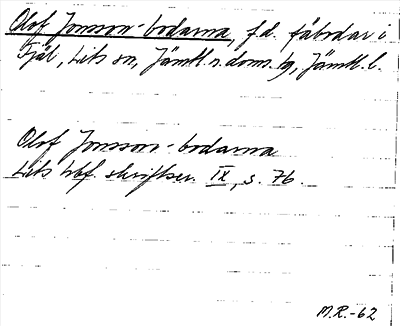 Olof Jonsson-bodarna, f.d. fäbodar i
Fjäl, Lits sn, Jämtl. n. doms. tg, Jämtl. l.
Olof Jonsson-bodarna
Lits hbf. skriftser. IX, s. 76.
M.R.-62